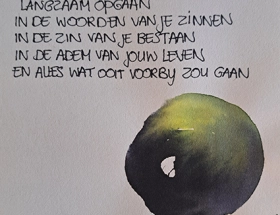 LANGZAAM OPGAAN
IN DE WOORDEN VAN JE ZINNEN
IN DE ZIN VAN JE BESTAAN
IN DE ADEM VAN JOUW LEVEN
EN ALLES WAT OOIT VOORBIJ ZOU GAAN